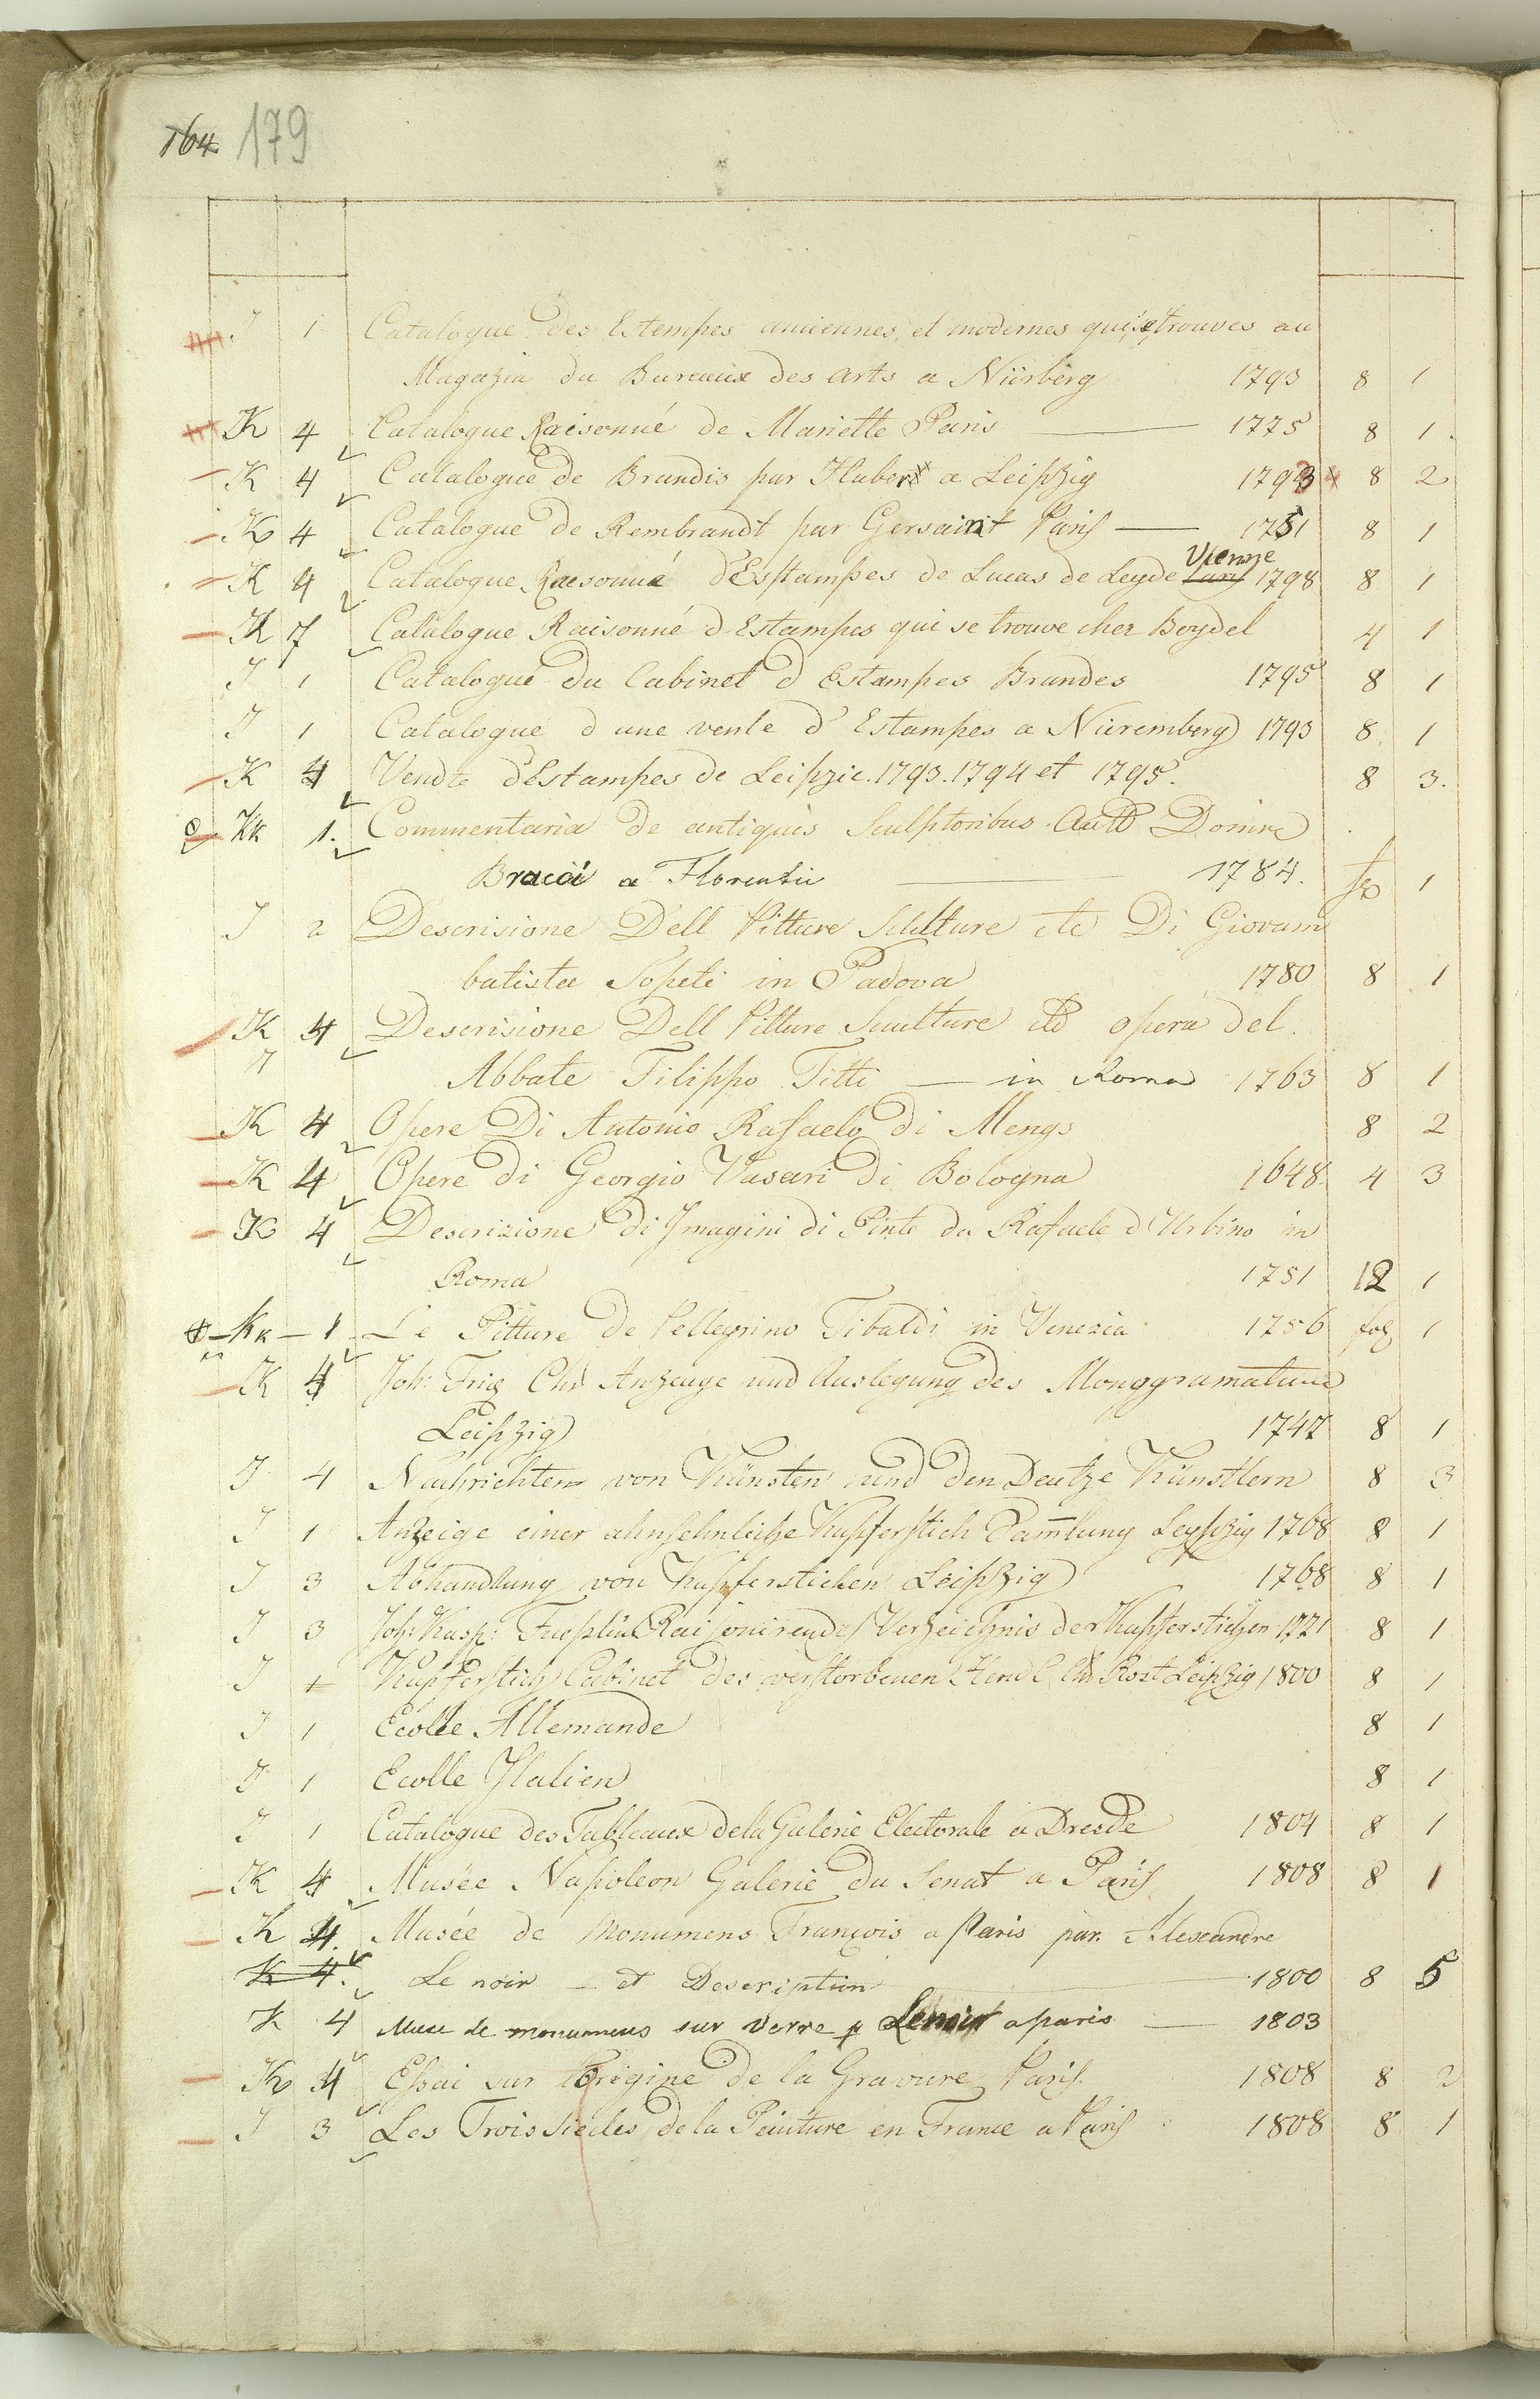 164 179
J 1 Catalogue des Estempes anciennes et modernes qui se trouves au
Magazin du Bureaux des Arts a Nürberg 1793 8 1
K 4 Catalogue Raisonné de Mariette Paris — 1775 8 1.
K 4 Catalogue de Brandis par Huber a Leipzig 1793 8 2
K 4 Catalogue de Rembrandt par Gersaint Paris — 1751 8 1
Vienne
K 4 Catalogue Raisonné d'Estampes de Lucas de Leyde Paris 1798 8 1
K 7 Catalogue Raisonné d'Estampes qui se trouve chez Boydel 4 1
J 1 Catalogue du Cabinet d Estampes Brandes 1795 8 1
J 1 Catalogue d une vente d'Estampes a Nüremberg 1793 8 1
K 4 Vendte d'Estampes de Leipzic. 1793. 1794 et 1795. 8 3.
Kk 1. Commentaria de antiquis Sculptoribus Domine
Bracci a Florentie — 1784. fo 1
J 2 Descrisione Dell Pitture Sculture etc Di Giovam
batista Sopeti in Padova 1780 8 1
K 4 Descrisione Dell Pitture Sculture etc opera del.
Abbate Filippo Titti — in Roma 1763 8 1
K 4 Opere Di Antonio Rafaelo di Mengs 8 2
K 4 Opere di Georgio Vasari di Bologna 1648. 4 3
K 4 Descrizione di Jmagini di Pinte da Rafaele d'Urbino in
Roma 1751 12 1
Kk — 1 Le Pitture de Pellegrino Tibaldi in Venezia 1756 fol 1
K 4 Joh: Frid Chr Anzeuge und Auslegung des Monggramatune
Leipzig 1747 8 1
J 4 Nachrichten von Künsten und den Deutze Künstlern 8 3
J 1 Anzeige einer ahnsehnleihe Kupferstich Sam̅lung Leypzig 1768 8 1
J 3 Abhandlung von Kupferstichen Leipzig 1768 8 1
J 3 Joh: Kasp: Fuesslin Raisonirendes Verzeichnis der Kupferstichen 1771 8 1
J 1 Kupferstich Cabinet des verstorbenen Rost Leipzig 1800 8 1
J 1 Ecolle Allemande 8 1
J 1 Ecolle Jtalien 8 1
J 1 Catalogue des Tableaux de la Galerie Electorale a Dresde 1804 8 1
K 4 Musée Napoleon Galerie du Senat a Paris 1808 8 1
K 4. Musée de Monumens François a Paris par. Alexandre
K 4. Le noir — et Description 1800 8 5
K 4 Muse de monumens sur verre p Lenoir a paris — 1803
K 4 Essai sur l'Origine de la Gravure Paris. 1808 8 2
J 3 Les Trois Siecles de la Peinture en France a Paris 1808 8 1